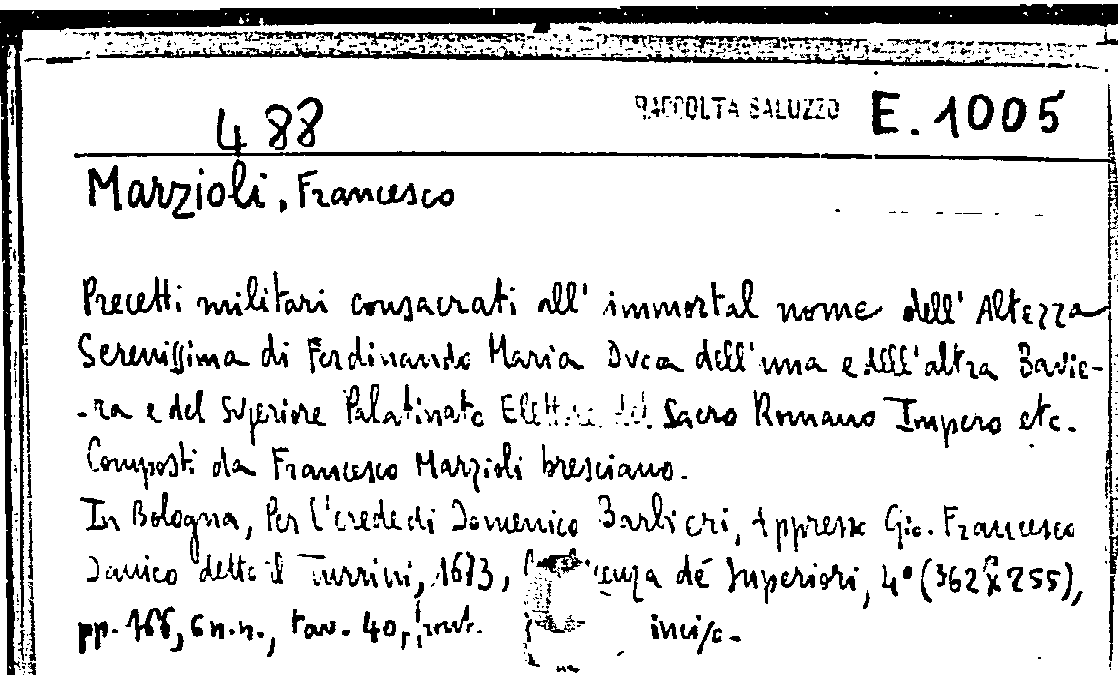 488 RACCOLTA SALUZZO E. 1005
Marzioli, Francesco
Precetti militari consacrati all' immortal nome dell' Altezza
Serenissima di Ferdinando Maria Dvca dell'una e dell'altra Bavie-
-ra e del Superiore Palatinato Elettore del Sacro Romano Impero etc.
Composti da Francesco Marzioli bresciano.
In Bologna, Per l'erede di Domenico Barbieri, Appresso Gio. Francesco
Davico detto il Turrini, 1673, dé Superiori, 4° (362x255),
pp. 166, 6 n.n., tav. 40, front. incisa.